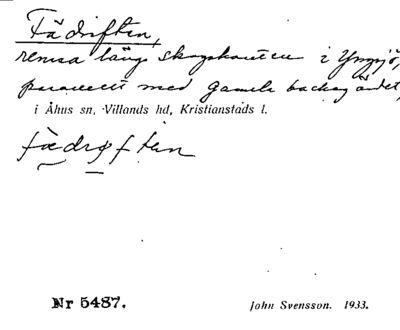 Fädriften,
remsa längs skogskanten i Yngsjö,
parallellt med Gamla backag ärdet,
i Åhus sn, Villands hd, Kristianstads l.
fædrǫften
Nr 5487.
John Svensson. 1933.